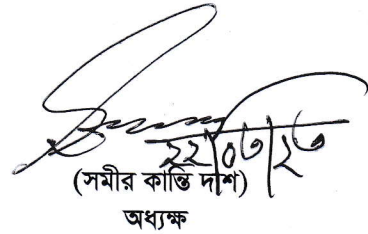 ২২|০৩|২৩
(সমীর কান্তি দাশ)
অধ্যক্ষ